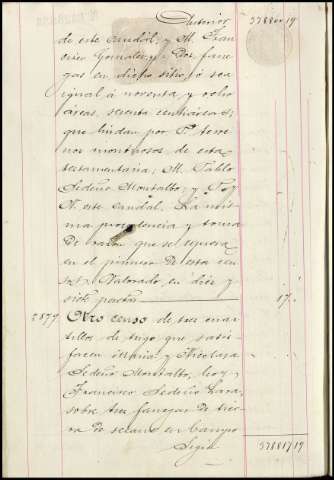 Anterior 37800 19
de este caudal, y M. Fran-
cisco Gonzalez, y Dos fane-
gas en dicho sitio, ó sea
igual á noventa y ocho
áreas, sesenta centiáreas;
que lindan por P. terre-
nos montuosos de esta
testamentaria; M. Pablo
Sedeño Montalbo; y
N. este caudal. La mis-
ma procedencia y toma
de razon que se espresa
en el primero de esta
Valorado en diez y
siete pesetas 17
2877 Otro censo de tres cuar-
tillos de trigo que satis-
facen Maria y Nicolasa
Sedeño Montalbo, hoy
Francisco Sedeño Lara,
sobre tres fanegas de tier-
ra de secano en Campo
Sigue 37817 19